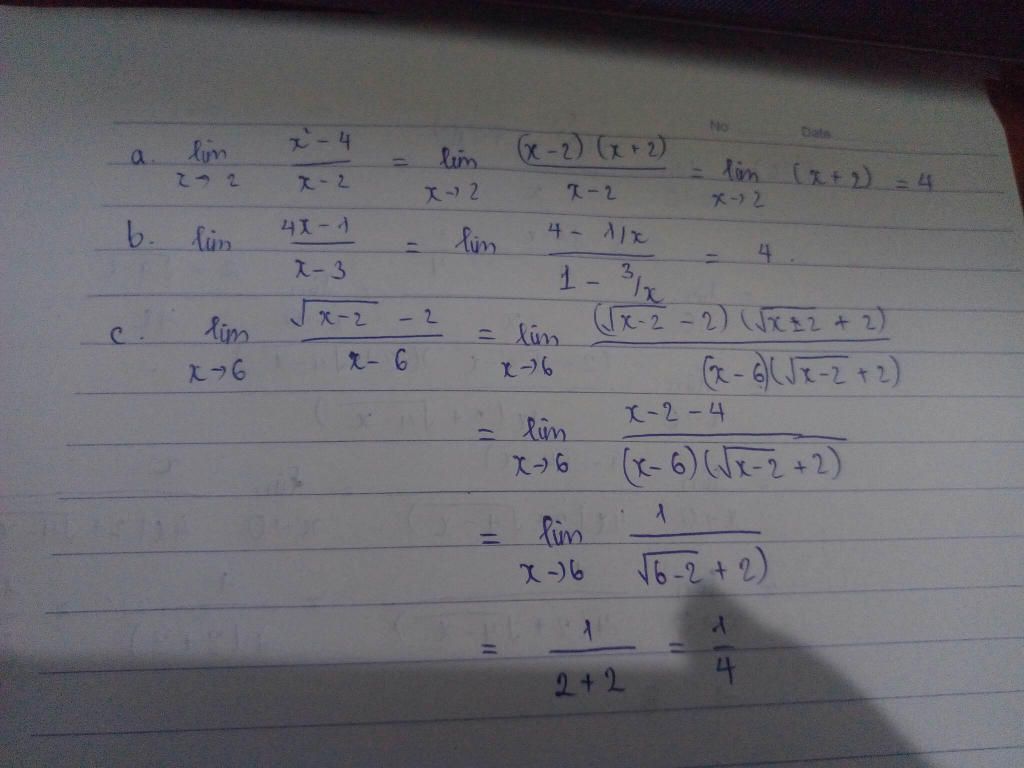 No Date
a. lim x→2 x²-4 / x-2 = lim x→2 (x-2)(x+2) / x-2 = lim x→2 (x+2) = 4
b. lim 4x-1 / x-3 = lim 4 - 1/x / 1 - 3/x = 4.
c. lim x→6 √x-2 - 2 / x-6 = lim x→6 (√x-2 - 2)(√x-2 + 2) / (x-6)(√x-2 + 2)
= lim x→6 x-2-4 / (x-6)(√x-2 + 2)
= lim x→6 1 / √6-2 + 2)
= 1 / 2+2 = 1/4